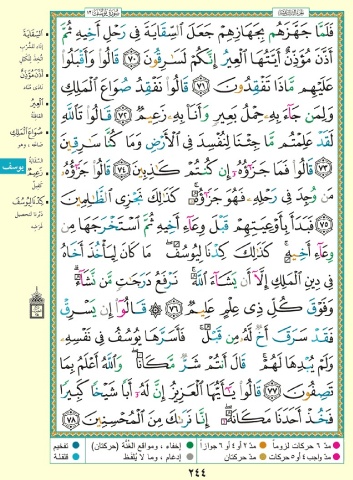 سورة يوسف ١٢
فَلَمَّا جَهَّزَهُم بِجَهَازِهِمْ جَعَلَ ٱلسِّقَايَةَ فِى رَحْلِ أَخِيهِ ثُمَّ
أَذَّنَ مُؤَذِّنٌ أَيَّتُهَا ٱلْعِيرُ إِنَّكُمْ لَسَـٰرِقُونَ ﴿٧٠﴾ قَالُوا۟ وَأَقْبَلُوا۟
عَلَيْهِم مَّاذَا تَفْقِدُونَ ﴿٧١﴾ قَالُوا۟ نَفْقِدُ صُوَاعَ ٱلْمَلِكِ
وَلِمَن جَآءَ بِهِۦ حِمْلُ بَعِيرٍ وَأَنَا۠ بِهِۦ زَعِيمٌ ﴿٧٢﴾ قَالُوا۟ تَٱللَّهِ
لَقَدْ عَلِمْتُم مَّا جِئْنَا لِنُفْسِدَ فِى ٱلْأَرْضِ وَمَا كُنَّا سَـٰرِقِينَ
﴿٧٣﴾ قَالُوا۟ فَمَا جَزَٰٓؤُهُۥٓ إِن كُنتُمْ كَـٰذِبِينَ ﴿٧٤﴾ قَالُوا۟ جَزَٰٓؤُهُۥ
مَن وُجِدَ فِى رَحْلِهِۦ فَهُوَ جَزَٰٓؤُهُۥ ۚ كَذَٰلِكَ نَجْزِى ٱلظَّـٰلِمِينَ
﴿٧٥﴾ فَبَدَأَ بِأَوْعِيَتِهِمْ قَبْلَ وِعَآءِ أَخِيهِ ثُمَّ ٱسْتَخْرَجَهَا مِن
وِعَآءِ أَخِيهِ ۚ كَذَٰلِكَ كِدْنَا لِيُوسُفَ ۖ مَا كَانَ لِيَأْخُذَ أَخَاهُ
فِى دِينِ ٱلْمَلِكِ إِلَّآ أَن يَشَآءَ ٱللَّهُ ۚ نَرْفَعُ دَرَجَـٰتٍ مَّن نَّشَآءُ ۗ
وَفَوْقَ كُلِّ ذِى عِلْمٍ عَلِيمٌ ﴿٧٦﴾ ۞ قَالُوٓا۟ إِن يَسْرِقْ
فَقَدْ سَرَقَ أَخٌ لَّهُۥ مِن قَبْلُ ۚ فَأَسَرَّهَا يُوسُفُ فِى نَفْسِهِۦ
وَلَمْ يُبْدِهَا لَهُمْ ۚ قَالَ أَنتُمْ شَرٌّ مَّكَانًا ۖ وَٱللَّهُ أَعْلَمُ بِمَا
تَصِفُونَ ﴿٧٧﴾ قَالُوا۟ يَـٰٓأَيُّهَا ٱلْعَزِيزُ إِنَّ لَهُۥٓ أَبًا شَيْخًا كَبِيرًا
فَخُذْ أَحَدَنَا مَكَانَهُۥٓ ۖ إِنَّا نَرَىٰكَ مِنَ ٱلْمُحْسِنِينَ ﴿٧٨﴾
السقاية
أذن مؤذن
العير
القافلة
صواع الملك
زعيم
كفيل
كدنا ليوسف
يوسف
مدّ ٦ حركات لزوماً
مدّ ٢ أو ٤ أو ٦ جوازاً
إخفاء، ومواقع الغنّة (حركتان)
تفخيم
مدّ واجب ٤ أو ٥ حركات
مدّ حركتان
إدغام، وما لا يُلفظ
قلقلة
٢٤٤